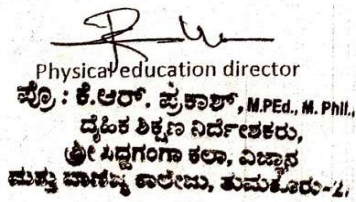 Physical education director
ಪ್ರೊ : ಕೆ.ಆರ್. ಪ್ರಕಾಶ್, M.PEd., M. Phil.,
ದೈಹಿಕ ಶಿಕ್ಷಣ ನಿರ್ದೇಶಕರು,
ಶ್ರೀ ಸಿದ್ಧಗಂಗಾ ಕಲಾ, ವಿಜ್ಞಾನ
ಮತ್ತು ವಾಣಿಜ್ಯ ಕಾಲೇಜು, ತುಮಕೂರು-2.